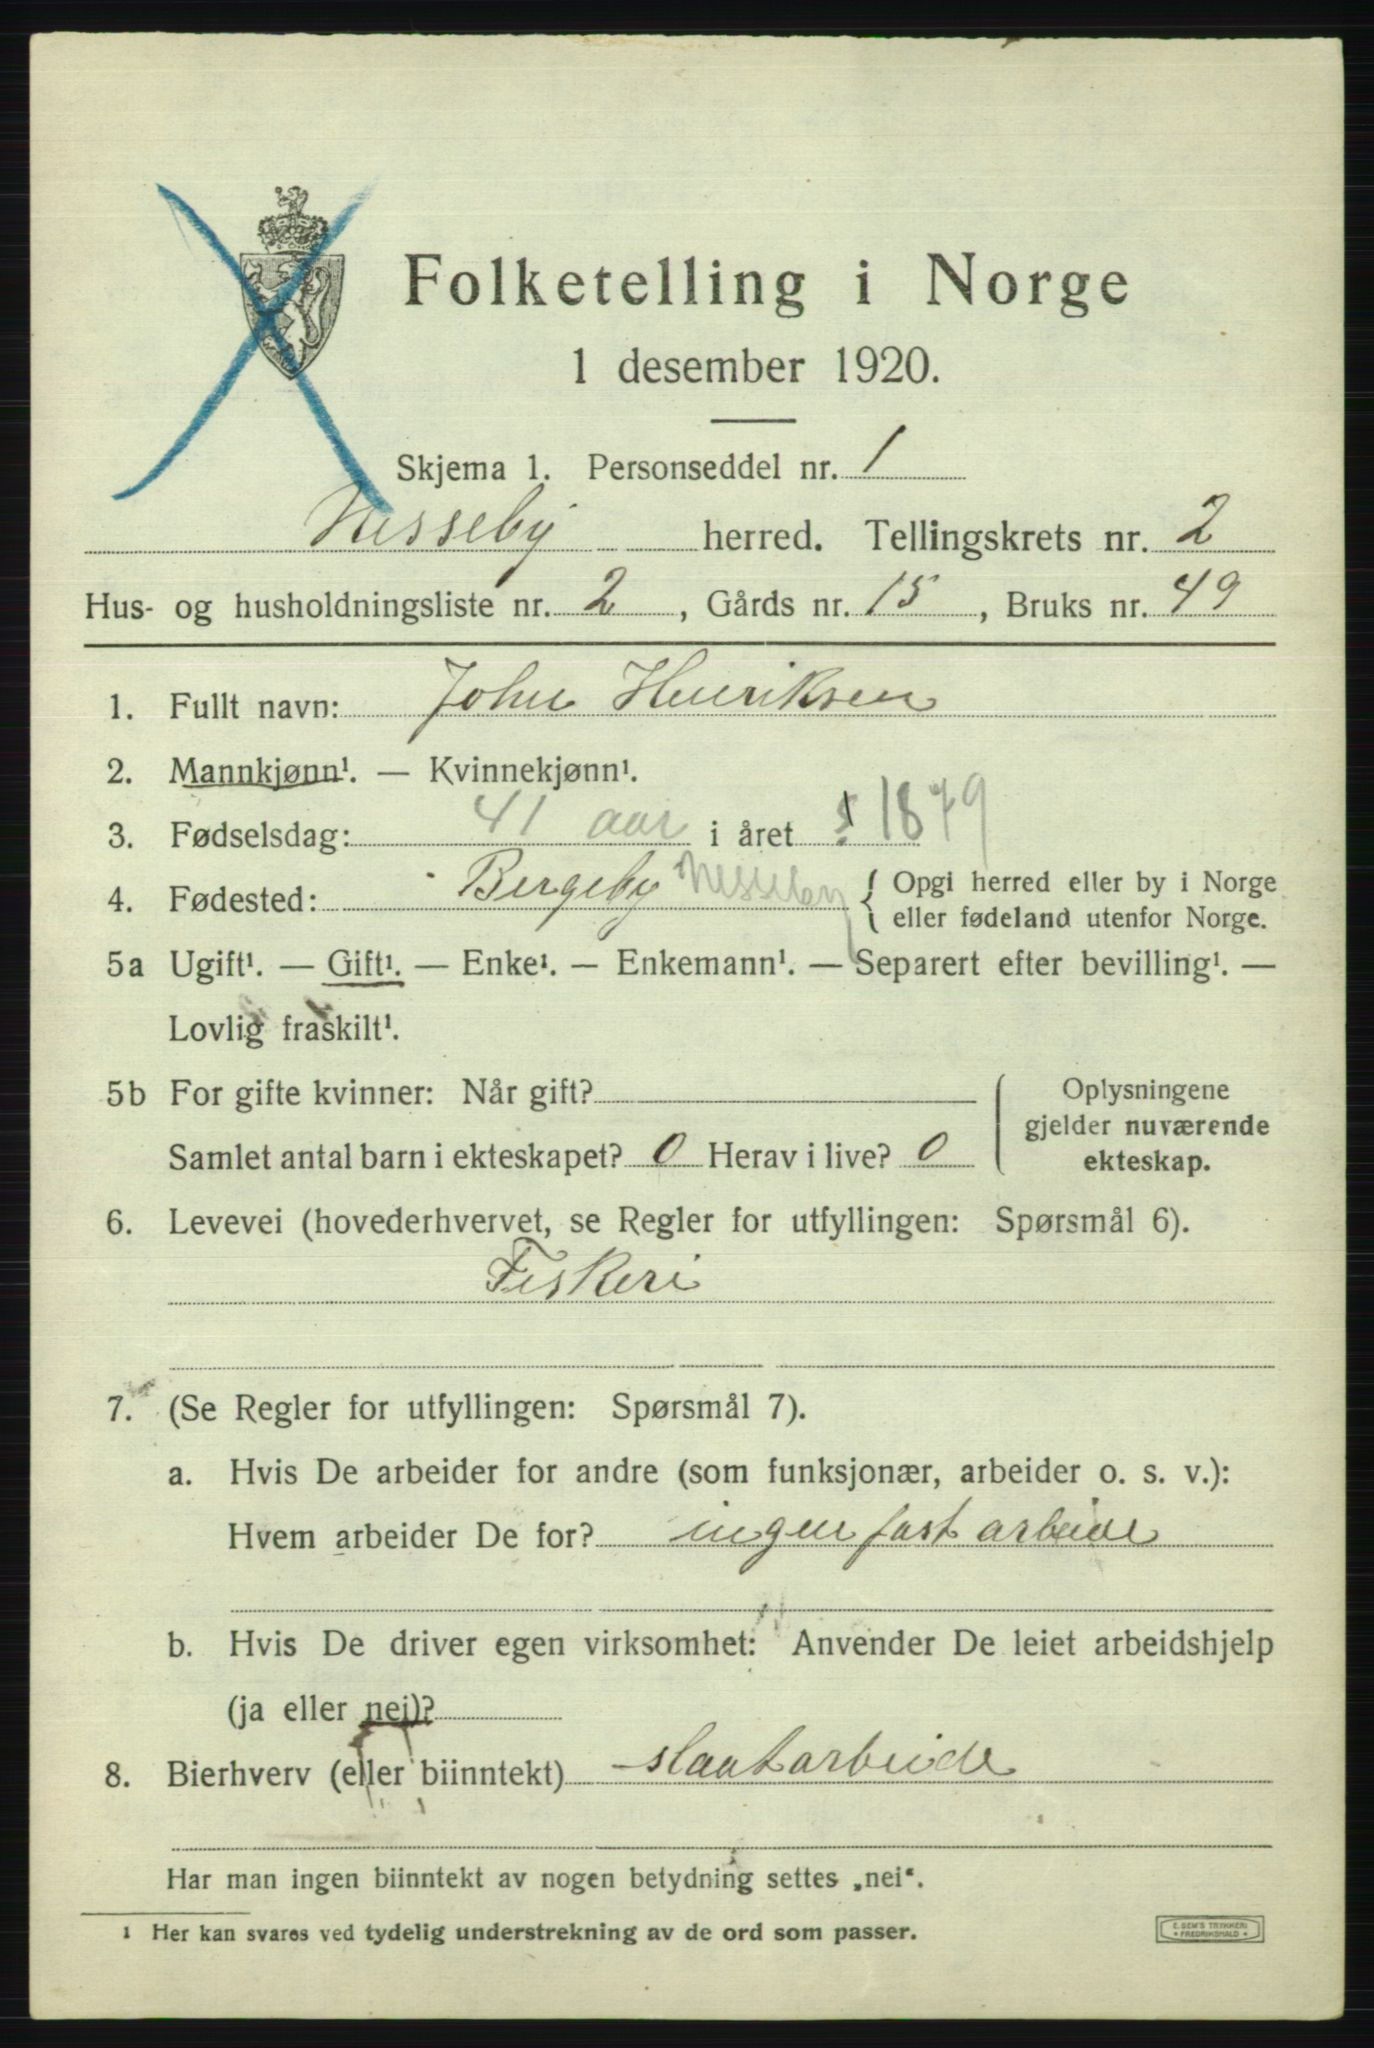 Folketelling i Norge
1 desember 1920.
Skjema 1. Personseddel nr. 1
Nesseby herred. Tellingskrets nr. 2
Hus- og husholdningsliste nr. 2, Gårds nr. 15, Bruks nr. 49
1. Fullt navn: John Henriksen
2. Mannkjønn¹. — Kvinnekjønn¹.
3. Fødselsdag: 41 aar i året 1879
4. Fødested: Bergeby Nesseby { Opgi herred eller by i Norge
eller fødeland utenfor Norge.
5a Ugift¹. — Gift¹. — Enke¹. — Enkemann¹. — Separert efter bevilling¹. —
Lovlig fraskilt¹.
5b For gifte kvinner: Når gift?
Samlet antal barn i ekteskapet? 0 Herav i live? 0
Oplysningene
gjelder nuværende
ekteskap.
6. Levevei (hovederhvervet, se Regler for utfyllingen: Spørsmål 6).
Fiskeri
7. (Se Regler for utfyllingen: Spørsmål 7).
a. Hvis De arbeider for andre (som funksjonær, arbeider o. s. v.):
Hvem arbeider De for? ingen fast arbeide
b. Hvis De driver egen virksomhet: Anvender De leiet arbeidshjelp
(ja eller nei)?
8. Bierhverv (eller biinntekt) slaatarbeide
Har man ingen biinntekt av nogen betydning settes „nei“.
¹ Her kan svares ved tydelig understrekning av de ord som passer.
E. SEM'S TRYKKERI
FREDRIKSHALD